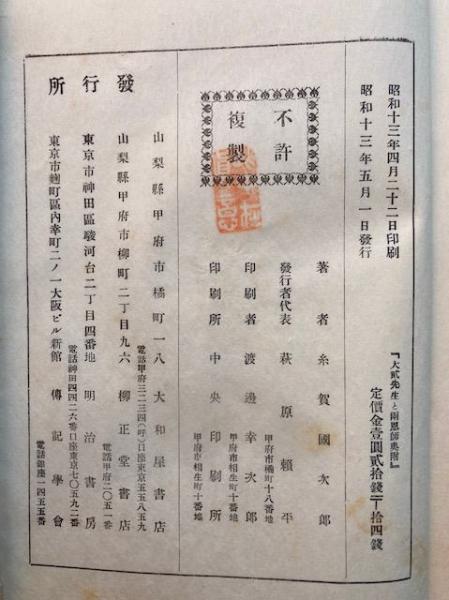 昭和十三年四月二十二日印刷
昭和十三年五月一日發行
『大貳先生と
定價金壹圓貳拾錢〒拾四錢
不許
複製
著者 糸賀國次郎
發行者代表 萩原賴平
甲府市橘町十八番地
印刷者 渡邊幸次郎
甲府市相生町十番地
印刷所 中央印刷所
甲府市相生町十番地
發行所
山梨縣甲府市橘町一八 大和屋書店
電話甲府三二三四(呼)口座東京五五八五九
山梨縣甲府市柳町二丁目九六 柳正堂書店
電話甲府二〇五一番
東京市神田區駿河台二丁目四番地 明治書房
電話神田四四二六番口座東京七〇五九二番
東京市麹町區內幸町二ノ一大阪ビル新館 傳記學會
電話銀座一四五五番